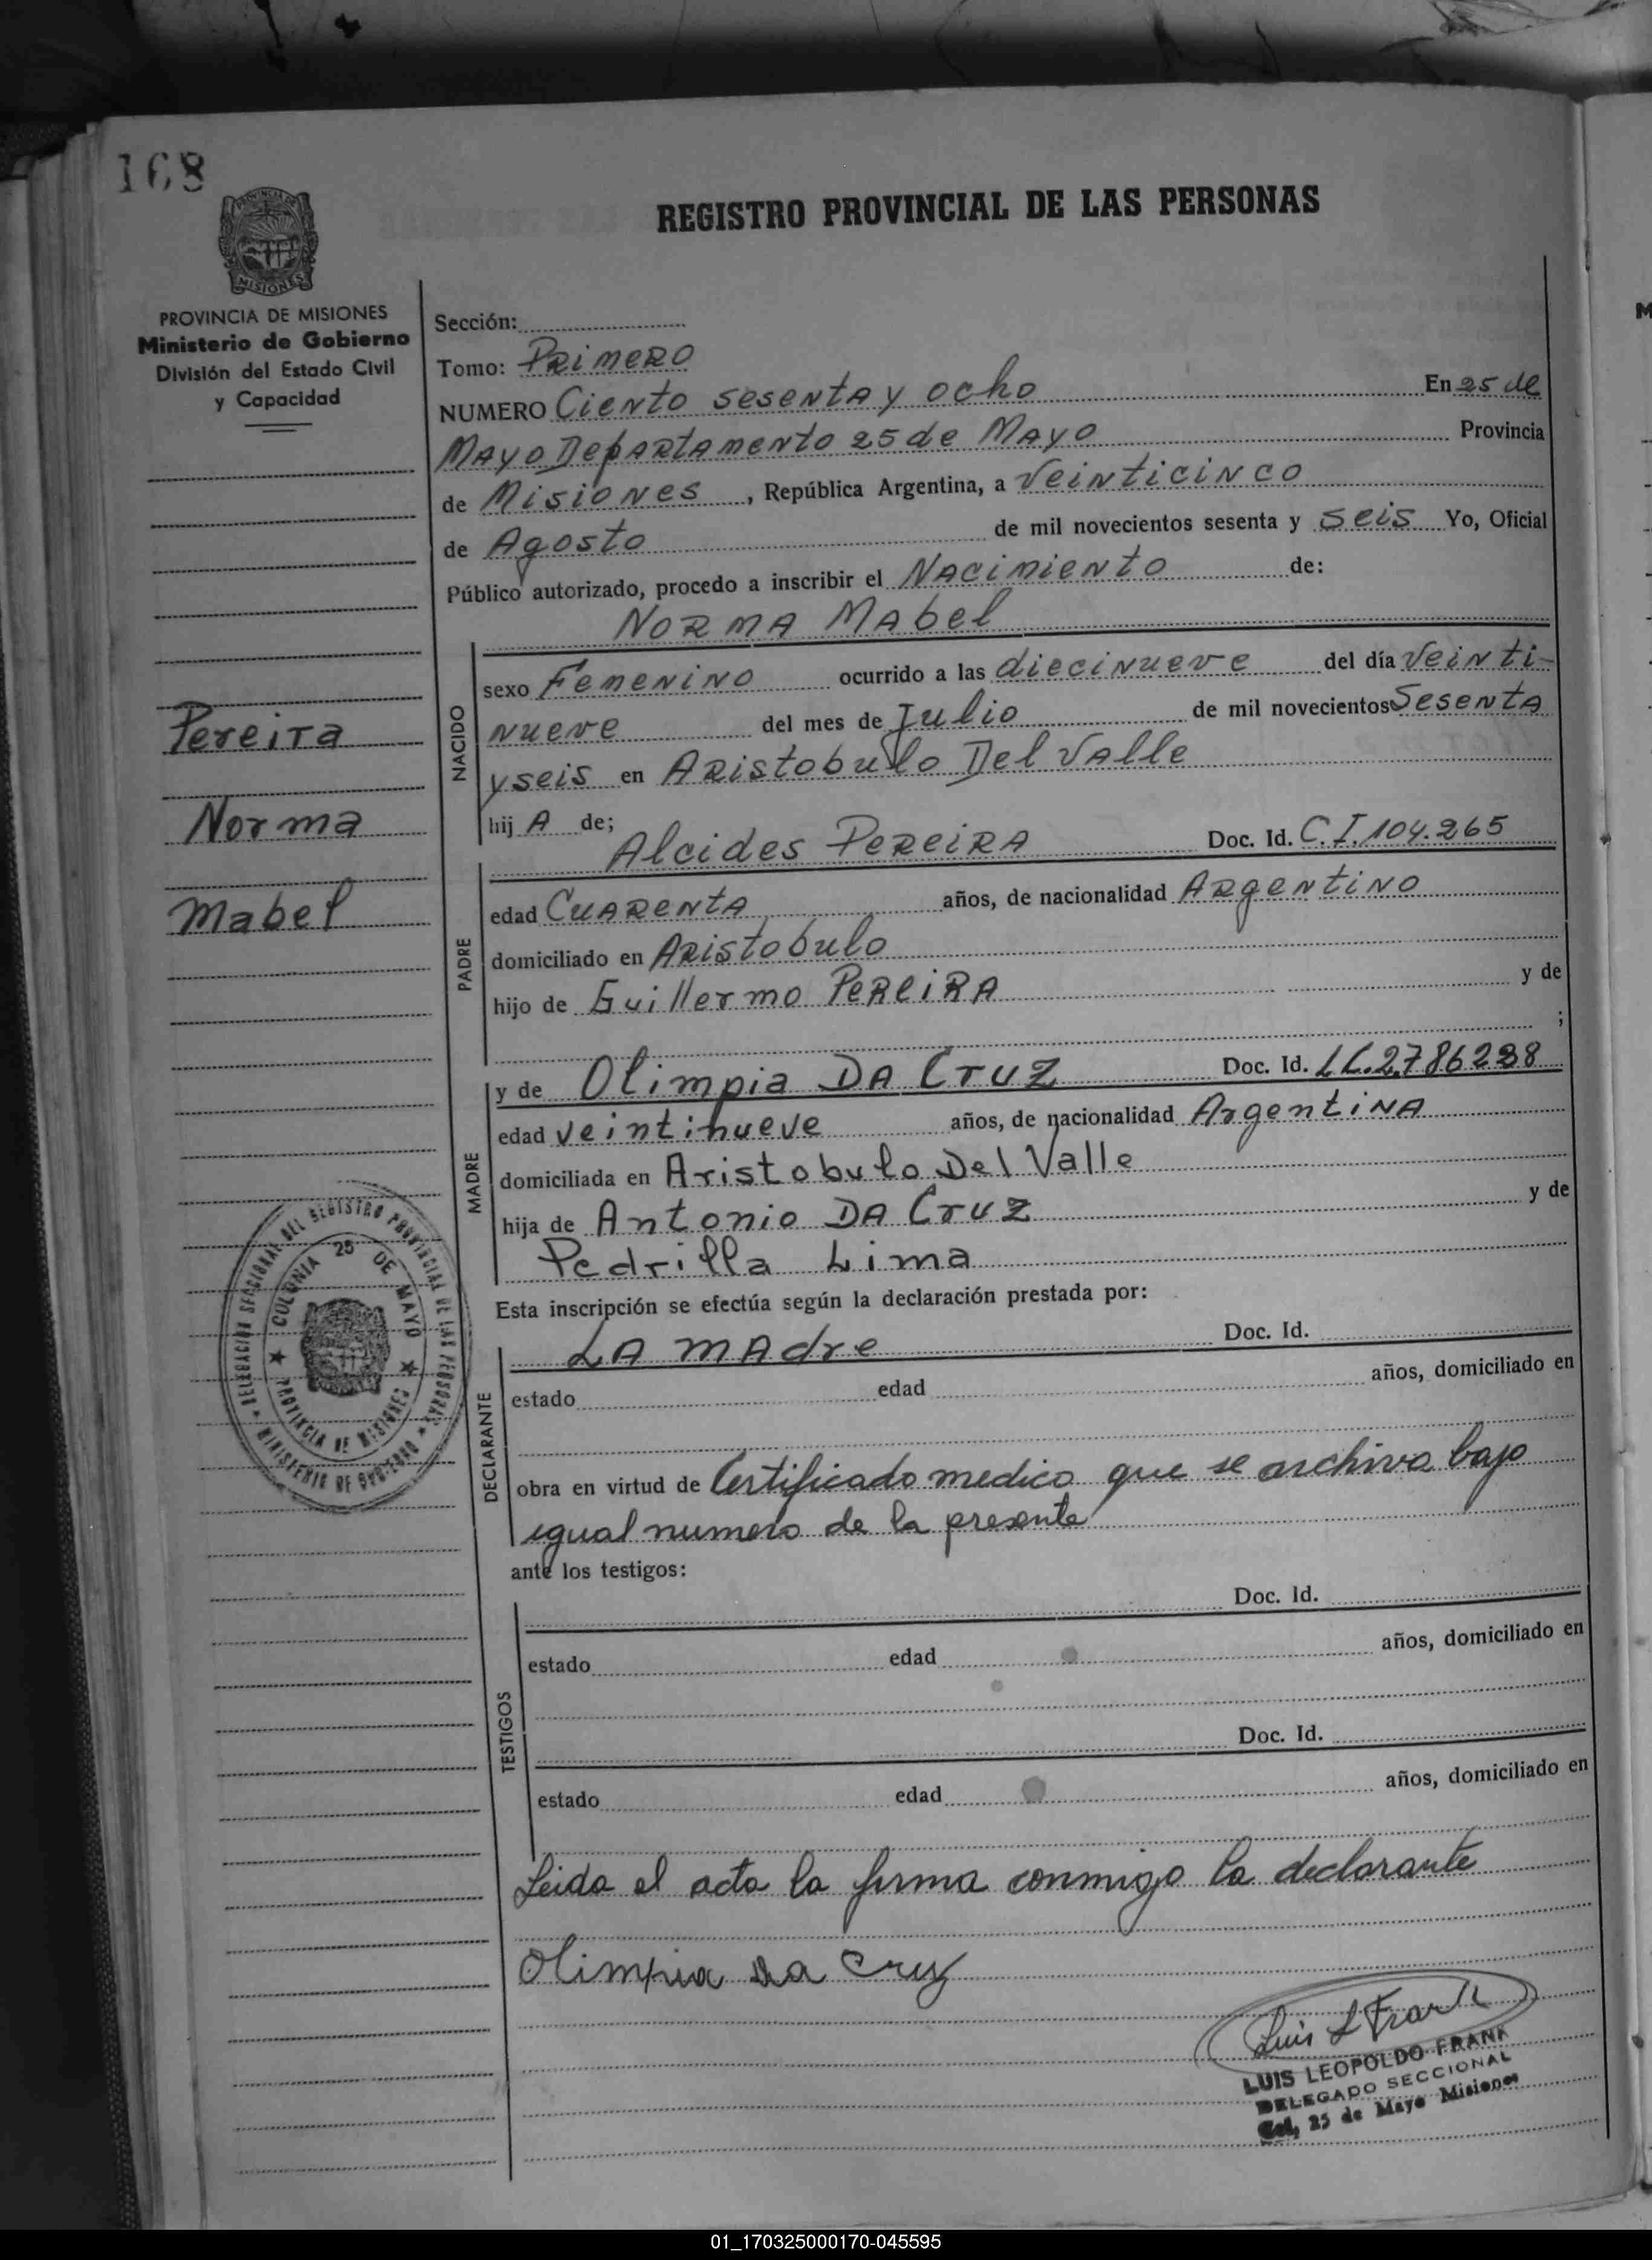 168
REGISTRO PROVINCIAL DE LAS PERSONAS
MISIONES
PROVINCIA DE MISIONES
Ministerio de Gobierno
División del Estado Civil
y Capacidad
Sección:
Tomo: Primero
NUMERO Ciento sesenta y ocho En 25 de
Mayo Departamento 25 de Mayo Provincia
de Misiones, República Argentina, a Veinticinco
de Agosto de mil novecientos sesenta y seis Yo, Oficial
Público autorizado, procedo a inscribir el Nacimiento de:
Norma Mabel
NACIDO
sexo Femenino ocurrido a las diecinueve del día Veinti-
nueve del mes de Julio de mil novecientos Sesenta
y seis en Aristobulo Del Valle
hij A de;
Pereira
Norma
Mabel
Alcides Pereira Doc. Id. C.I. 104.265
PADRE
edad Cuarenta años, de nacionalidad Argentino
domiciliado en Aristobulo
hijo de Guillermo Pereira y de
;
MADRE
y de Olimpia Da Cruz Doc. Id. LC. 2.786238
edad Veintinueve años, de nacionalidad Argentina
domiciliada en Aristobulo Del Valle
hija de Antonio Da Cruz y de
Pedrilla Lima
Esta inscripción se efectúa según la declaración prestada por:
DECLARANTE
La Madre Doc. Id.
estado edad años, domiciliado en
obra en virtud de Certificado medico que se archiva bajo
igual numero de la presente
ante los testigos:
DELEGACIÓN SECCIONAL DEL REGISTRO PROVINCIAL DE LAS PERSONAS
MINISTERIO DE GOBIERNO
COLONIA 25 DE MAYO
PROVINCIA DE MISIONES
TESTIGOS
Doc. Id.
estado edad años, domiciliado en
Doc. Id.
estado edad años, domiciliado en
Leida el acta la firma conmigo la declarante
Olimpia Da Cruz
Luis L Frank
LUIS LEOPOLDO FRANK
DELEGADO SECCIONAL
Col. 25 de Mayo Misiones
01_170325000170-045595